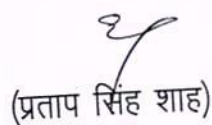 (प्रताप सिंह शाह)